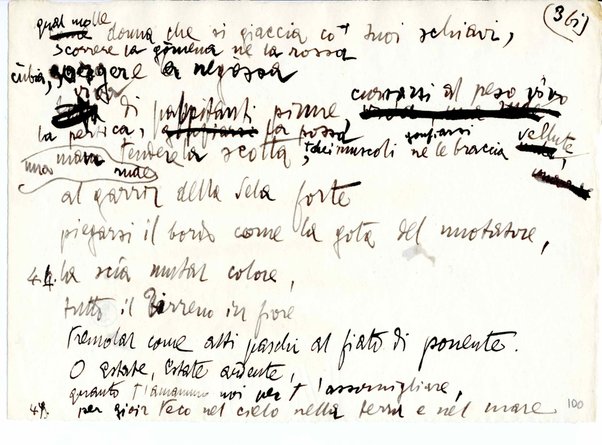 qual molle (36i)
donna che si giaccia co' tuoi schiavi,
scorrere la gómena ne la rossa
cùbia, sorgere la negossa
viva di palpitanti pinne, curvarsi al peso vivo
la pertica, la possa gonfiarsi vellute
una mano rude tender la scotta, dei muscoli ne le braccia
al garrir della vela forte
piegarsi il bordo come la gota del nuotatore,
la scia mutar colore,
tutto il Tirreno in fiore
tremolar come alti paschi al fiato di ponente.
O Estate, Estate ardente,
quanto t'amammo noi per t'assomigliare,
per gioir teco nel cielo nella terra e nel mare
100